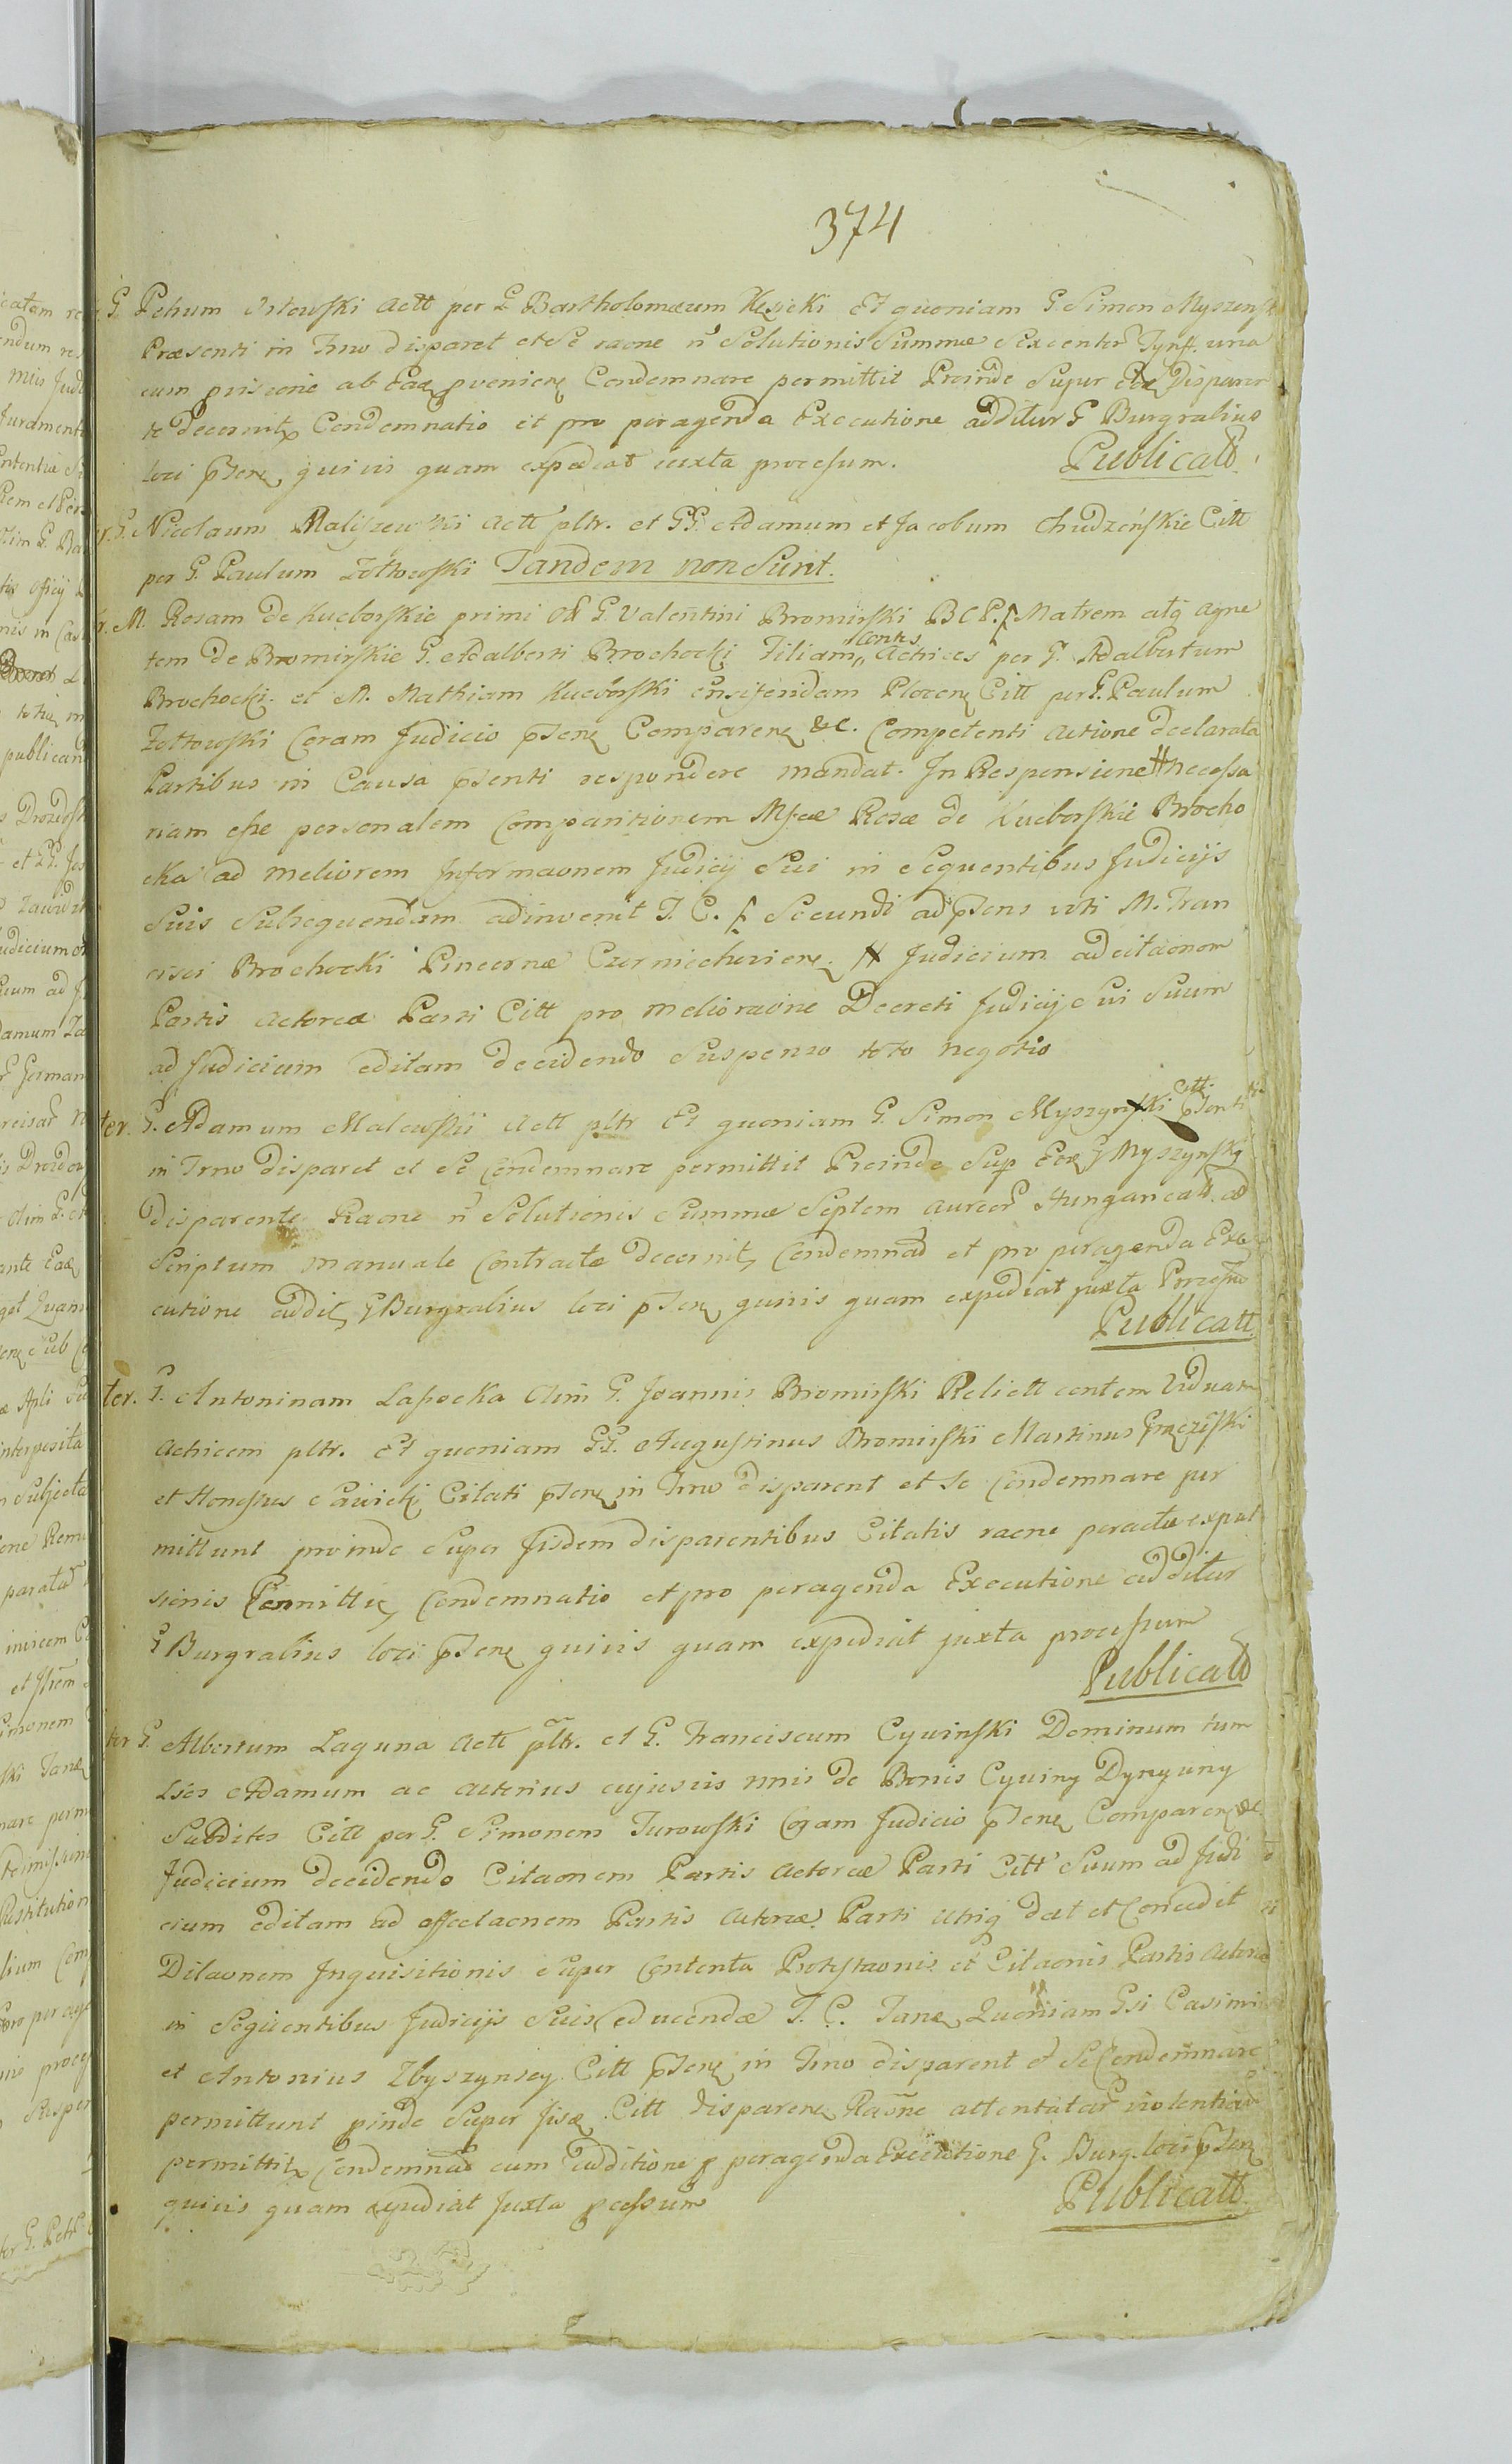 374
G. Petrum Orłowski Actt per G Bartholomæum Kęsicki Et quoniam G. Simon Myszynsk
Præsenti in Trno disparet et Se raone ñ Solutionis Summæ Sexcentor Tynf. una
cum provisione ab Eaq pvenien Condemnare permittit Proinde Super Eoe Disparen
te decernit Condemnatio et pro peragenda Executione additur G Burgrabius
loci pten quivis quam expediat iuxta processum.
Publicatt
ter. G. Nicolaum Maliszewski Actt pltr. et GG. Adamum et Jacobum Chudzeńskie Citt
per G. Paulum Zołtowski Tandem non Sunt.
ter. M. Rosam de Kucborskie primi Olī G. Valentini Bromirski B C P. Matrem atq Agne
tem de Bromirskie G. Adalberti Brochocki Contes Filiam Actrices per G. Adalbertum
Brochocki et M. Mathiam Kucborski Ensiferidam Plocen Citt per G. Paulum
Zołtowski Coram Judicio pten Comparen &c. Competenti Actione declarata
Partibus in Causa pſenti respondere mandat. In Responsione # necessa
riam esse personalem Comparitionem Mfcæ Rosæ de Kucborskie Brocho
cka ad meliorem Informaonem Judicij Sui in Sequentibus Judicijs
Suis Subsequendam adinvenit T. C. Secundi ad pſens voti M. Fran
cisci Brochocki Pincernæ Czerniechovien. # Judicium ad citaonem
Partis Actoreæ Parti Citt pro melioraone Decreti Judicij Sui Suum
ad Judicium editam decidendo Suspenso toto negotio
ter. G. Adamum Malewskii Actt pltr Et quoniam G. Simon Myszynski Citt. pſenti
in Trno disparet et Se Condemnare permittit Proinde Sup Eoe G Myszynski
disparente Raone ñ Solutionis Summæ Septem Aureor Hungaricatt. ad
Scriptum manuale Contractæ decernit Condemnaō et pro peragenda Exe
cutione addit G Burgrabius loci pten quivis quam expediat juxta Processū
Publicatt
ter. G. Antoninam Lasocka Olim G. Joannis Bromirski Relictt contem Viduam
Actricem pltr. Et quoniam GG. Augustinus Bromirskii Martinus
et Honestus Sawicki Citati pten in Trno disparent et Se Condemnare per
mittunt proinde Super Jisdem disparentibus Citatis raone peractæ expul
sionis Permittit Condemnatio et pro peragenda Executione additur
G Burgrabius loci pten quivis quam expediat juxta processum
Publicatt
ter G. Albertum Laguna Actt pltr. et G. Franciscum Cywinski Dominum tum
Lsos Adamum ac Alterius cujusvis nnis de Bonis Cywiny Dynguny
Subditos Citt per G. Simonem Turowski Coram Judicio pten Comparen &c.
Judicium decidendo Citaonem Partis Actoreæ Parti Citt Suum ad Judi
cium editam ad affectaonem Partis Actoreæ Parti utriq dat et Concedit
Dilaonem Inquisitionis Super Contenta Protestaonis et Citaonis Partis Actoreæ
in Sequentibus Judicijs Suis educendæ T. C. Tanq Quoniam Gsi Casimi
et Antonius Zbyszynscy Citt pten in Trno disparent et Se Condemnare
permittunt pinde Super Jisq Citt disparen Raōne attentatar violentiar
permittit Condemnaō cum additione p peragenda Executione G. Burg. loci pten
quivis quam expediat Juxta pcessum
Publicatt